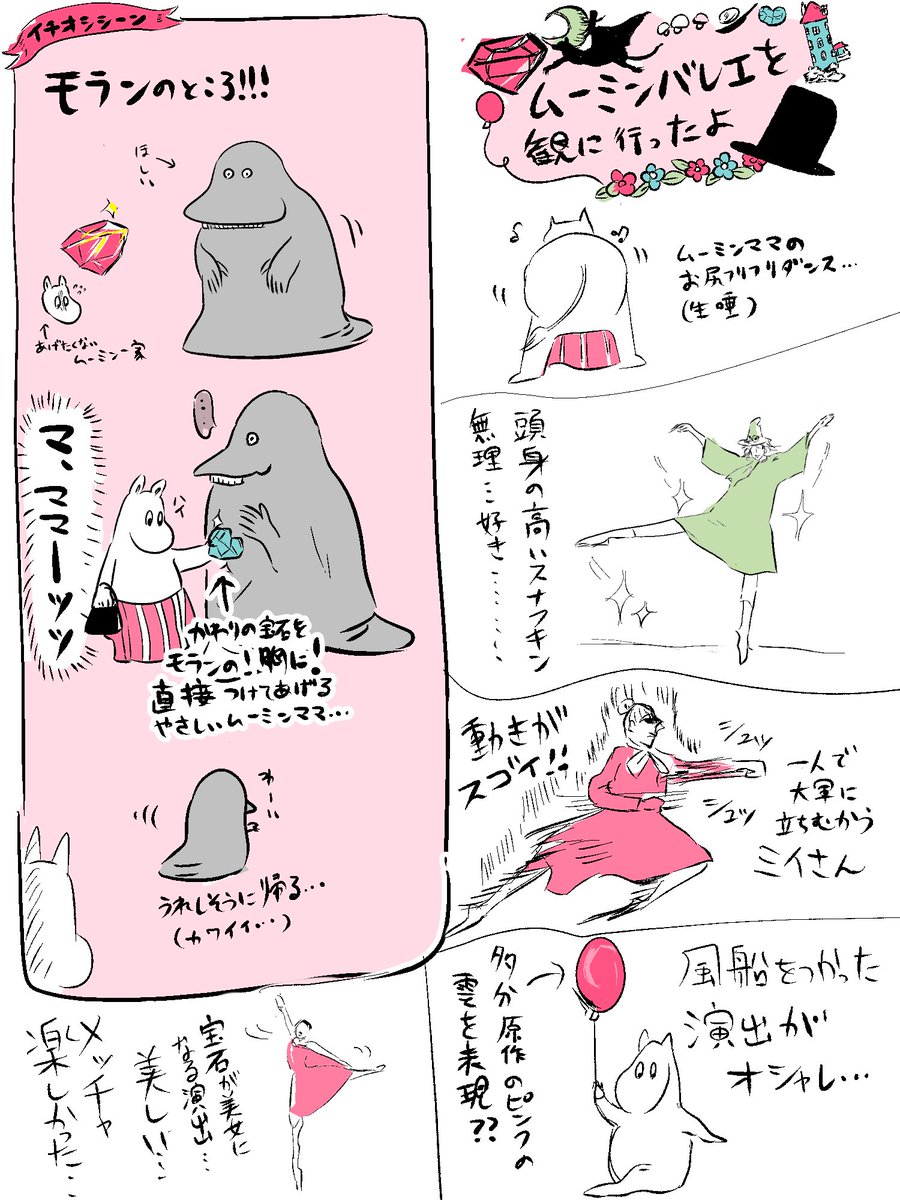 ムーミンバレエを
観に行ったよ
ムーミンママの
お尻フリフリダンス…
(生唾)
頭身の高いスナフキン
無理…好き………
動きが
スゴイ!!
シュッ
シュッ
一人で
大軍に
立ちむかう
ミイさん
風船をつかった
演出が
オシャレ…
多分原作のピンクの
雲を表現??
イチオシシーン
モランのところ!!!
ほしい
あげたくない
ムーミン一家
マ、ママーッッ
ハイ
かわりの宝石を
モランの!胸に!
直接つけてあげる
やさしいムーミンママ…
わーい
うれしそうに帰る…
(カワイイ…)
宝石が美女に
なる演出…
美しい…
メッチャ
楽しかった…